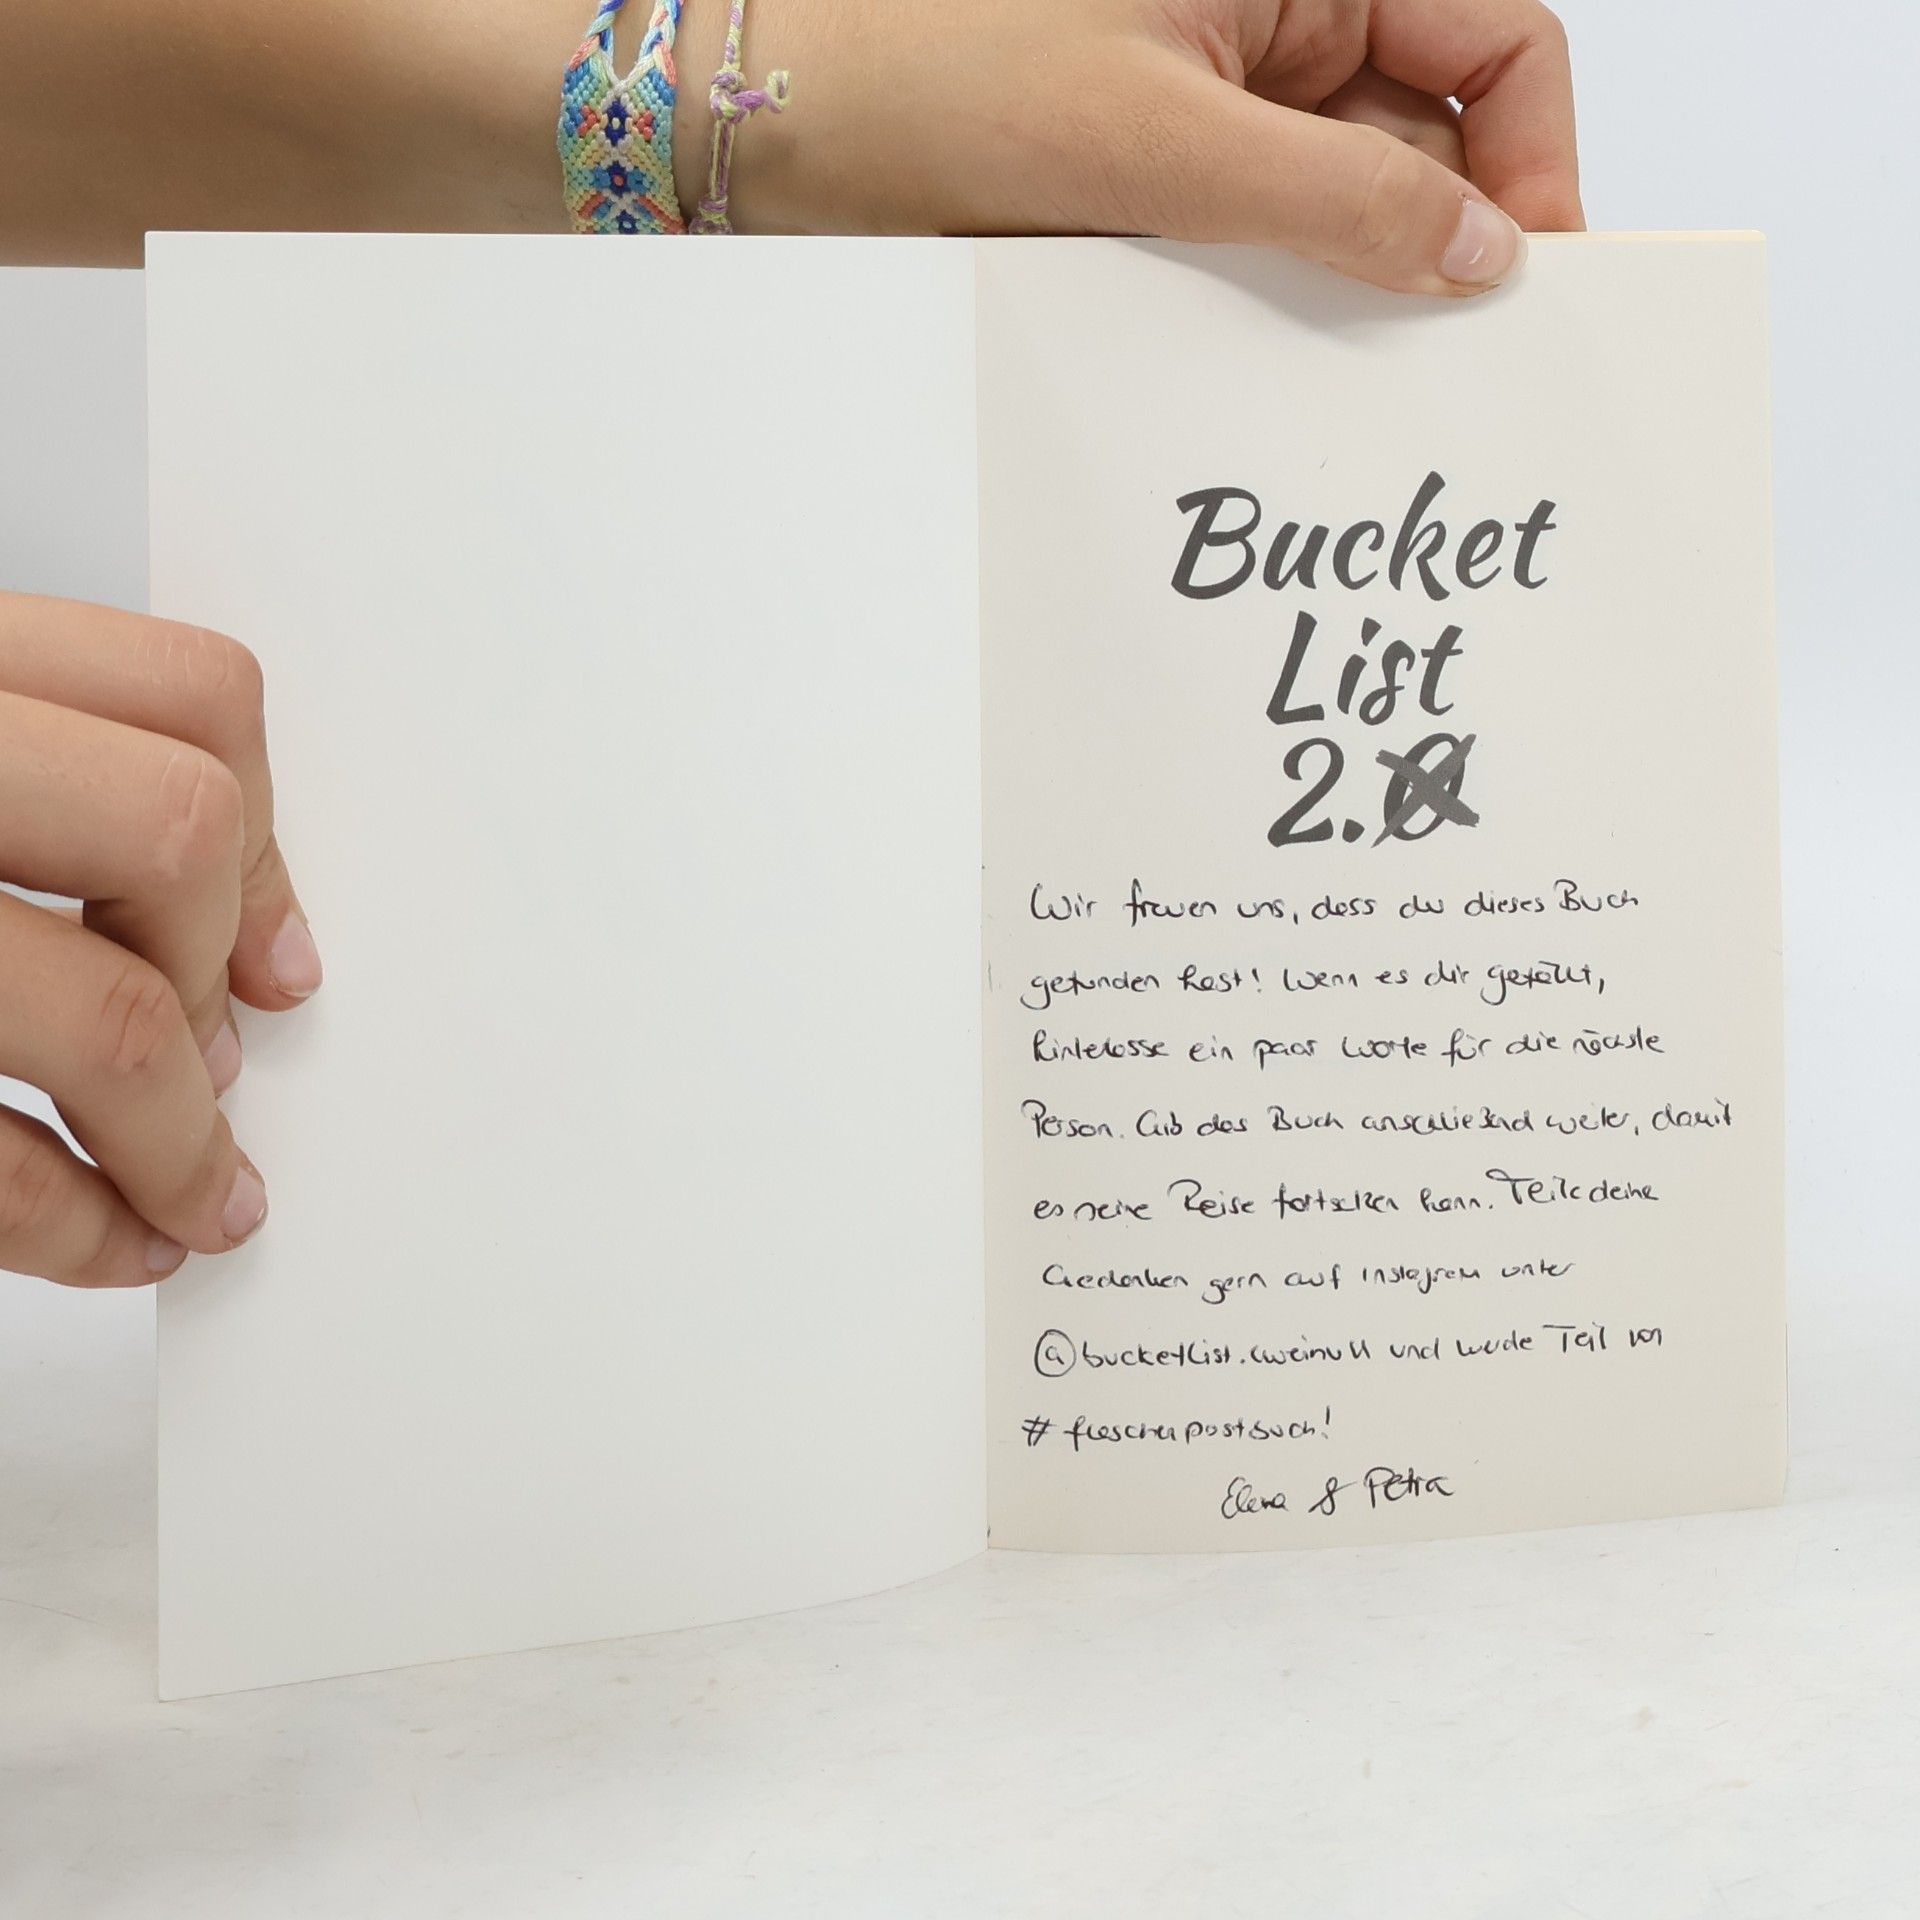 Bucket
List
2.0
Wir freuen uns, dass du dieses Buch
gefunden hast! Wenn es dir gefällt,
hinterlasse ein paar Worte für die nächste
Person. Gib das Buch anschließend weiter, damit
es seine Reise fortsetzen kann. Teile deine
Gedanken gern auf Instagram unter
@bucketlist.zweinull und werde Teil von
#flaschenpostbuch!
Elena & Petra